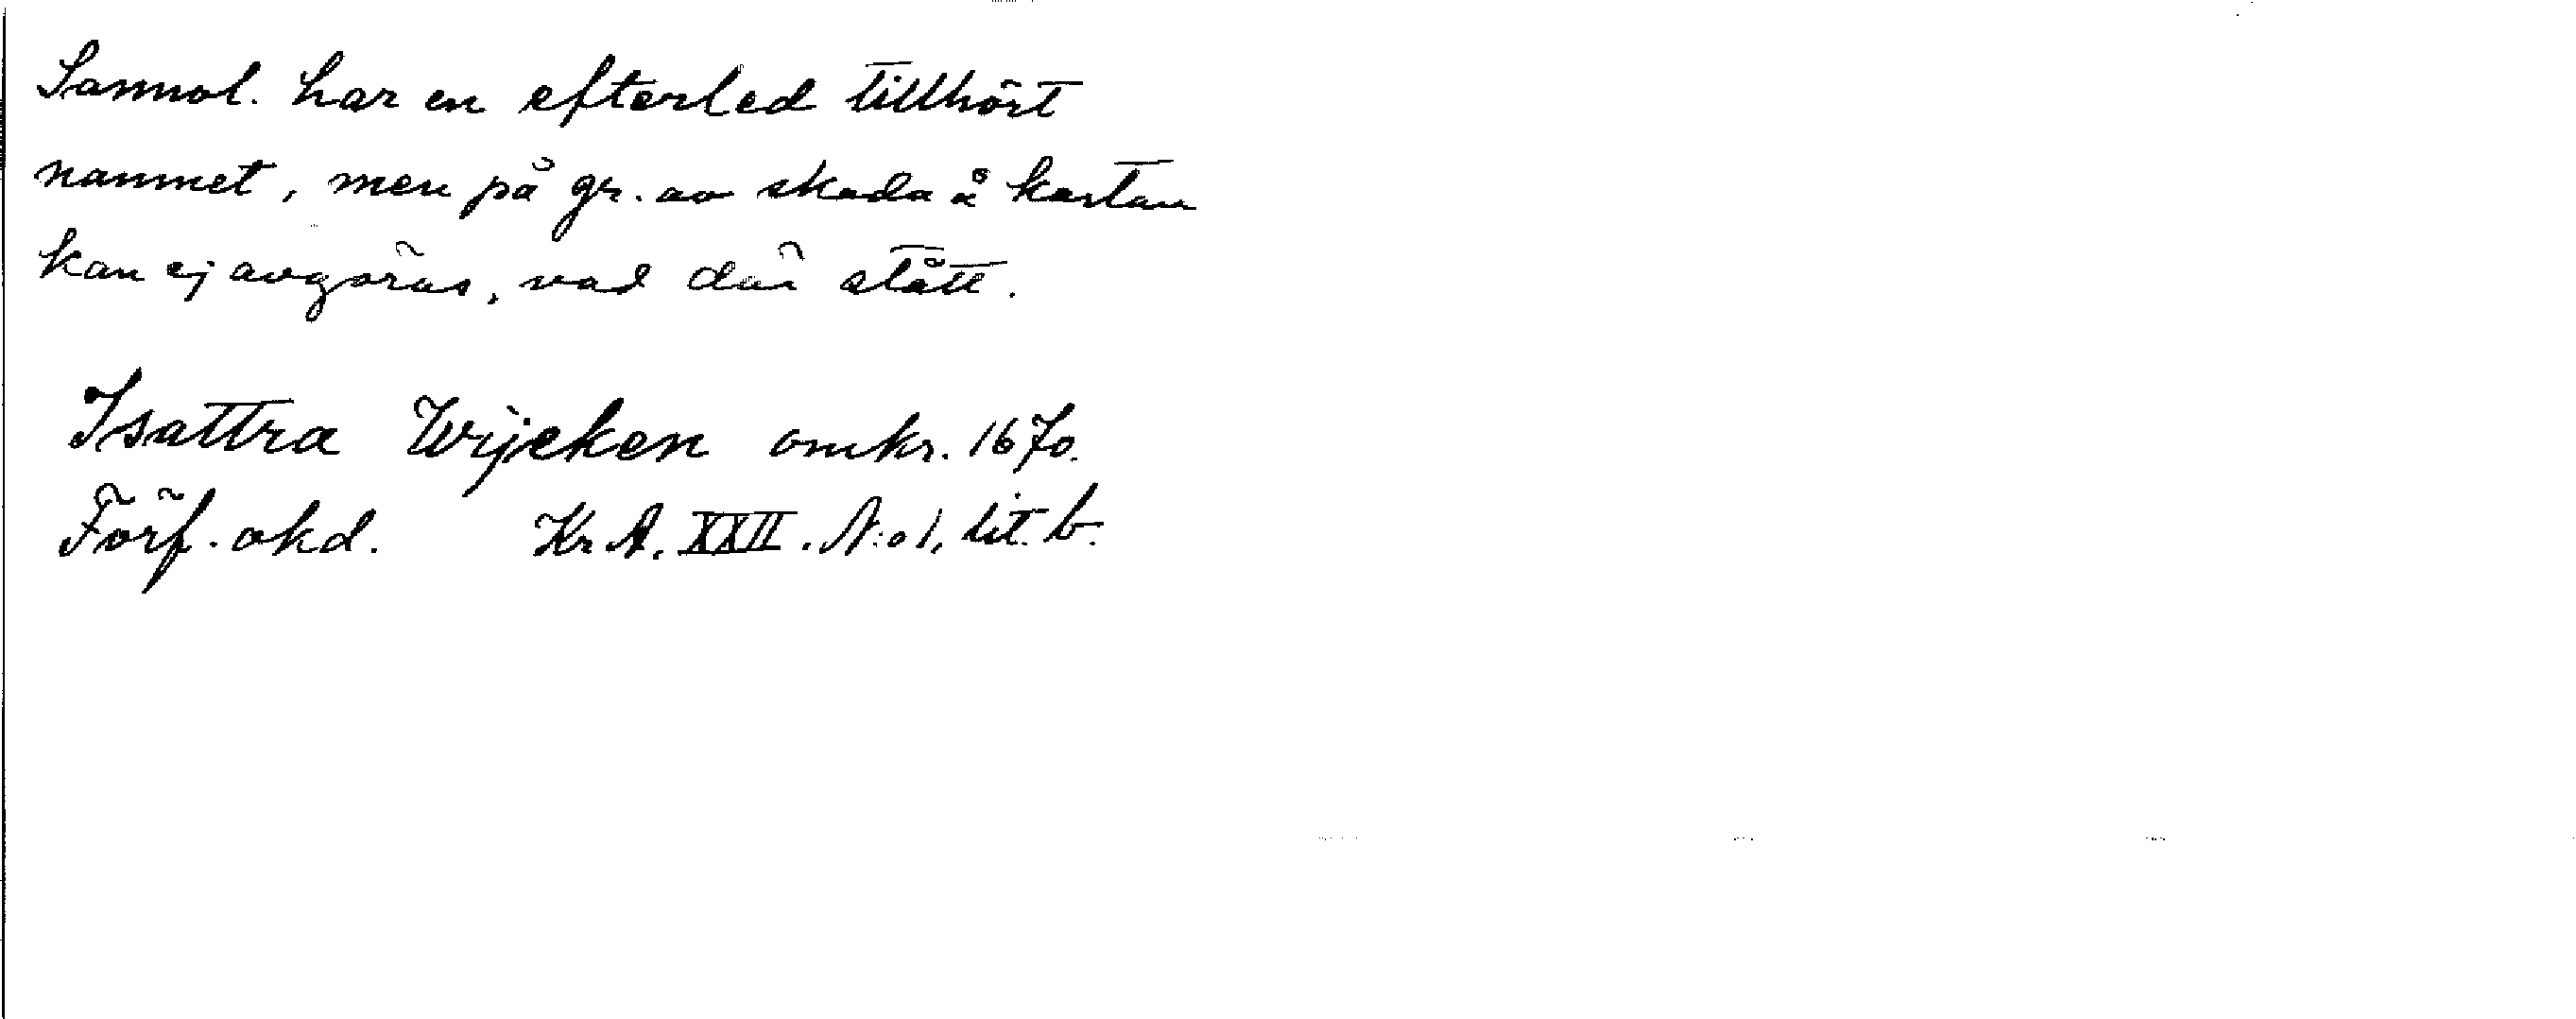 Sannol. har en efterled tillhört
namnet, men på gr. av skada å kartan
kan ej avgöras, vad där stått.
Isattra Wijcken omkr. 1670.
Förf. okd. Kr. A. XXII. N:o 1, lit. b.